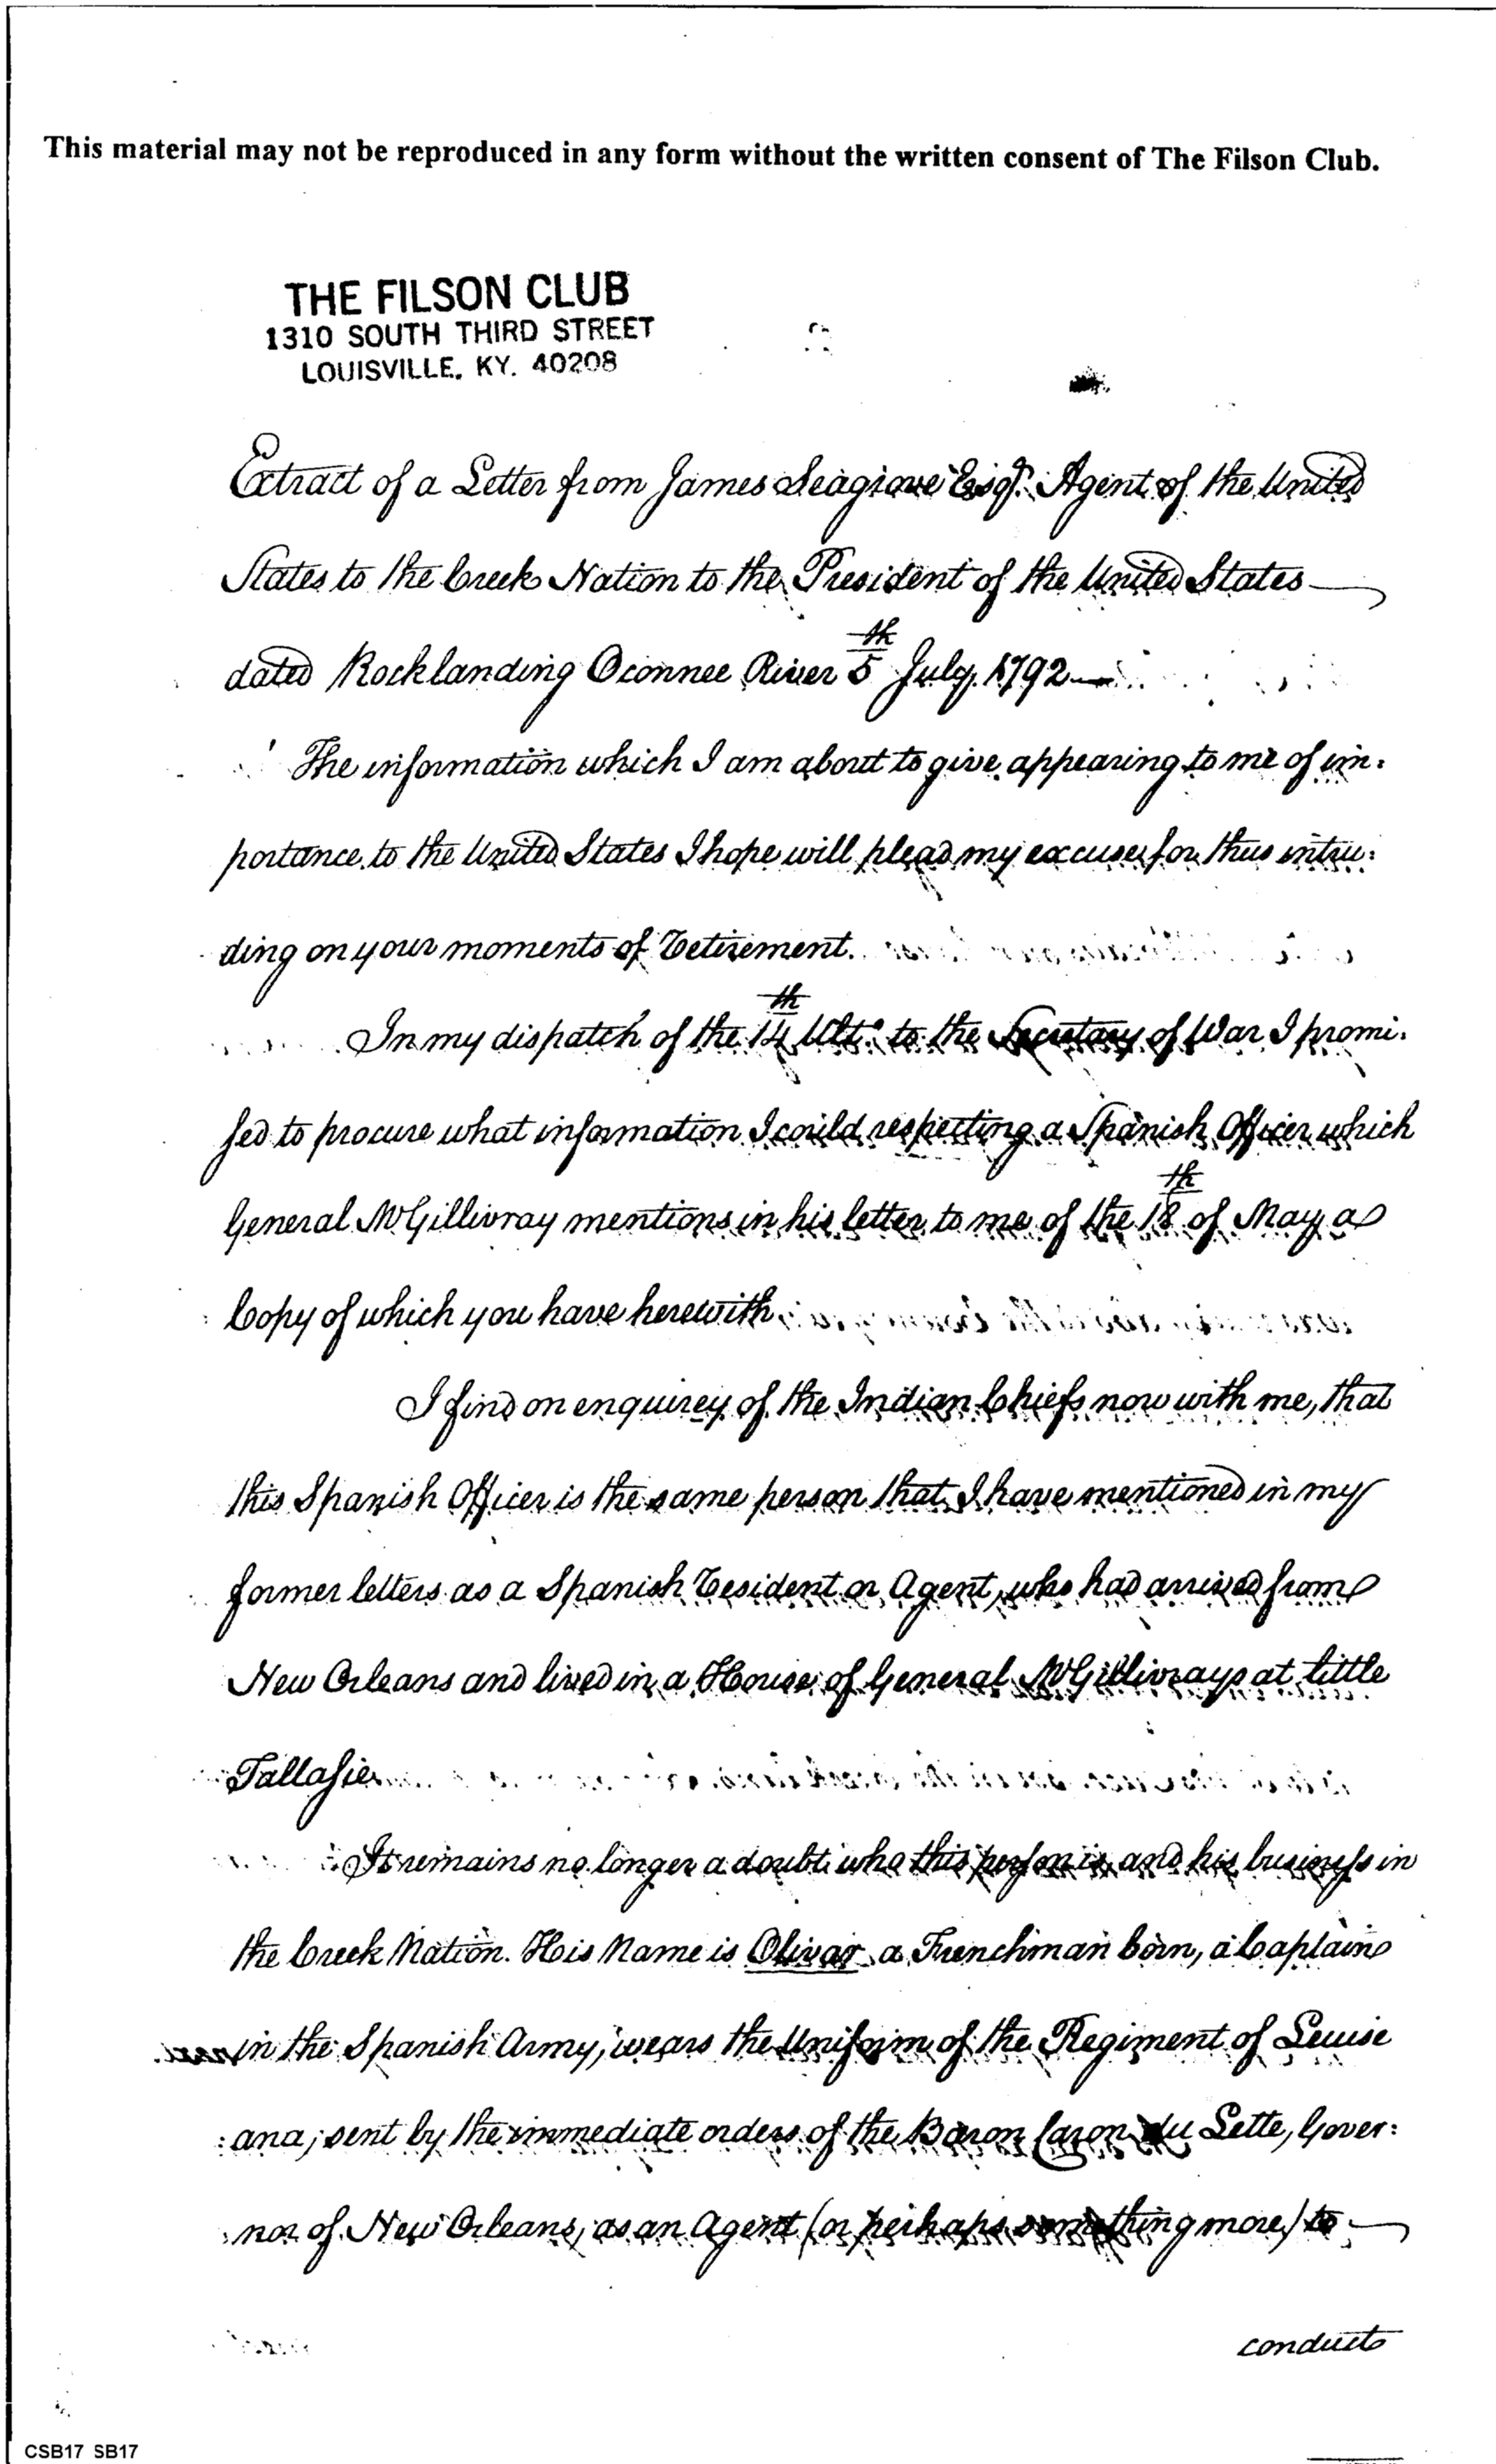 This material may not be reproduced in any form without the written consent of The Filson Club.
THE FILSON CLUB
1310 SOUTH THIRD STREET
LOUISVILLE, KY. 40208
Extract of a Letter from James Seagrove Esqr. Agent of the United
States to the Creek Nation to the President of the United States
dated Rocklanding Oconnee River 5th July 1792
The information which I am about to give appearing to me of im:
portance to the United States I hope will plead my excuse for thus intru:
ding on your moments of Retirement.
In my dispatch of the 14th Ulto to the Secretary of War I promi:
sed to procure what information I could respecting a Spanish Officer which
General McGillivray mentions in his letter to me of the 18th of May a
Copy of which you have herewith
I find on enquirey of the Indian Chiefs now with me, that
this Spanish Officer is the same person that I have mentioned in my
former letters as a Spanish Resident or Agent, who had arrived from
New Orleans and lived in a House of General McGillivrays at little
Tallasie
It remains no longer a doubt who this person is and his business in
the Creek Nation. His Name is Olivar a Frenchman born, a Captain
in the Spanish Army, wears the Uniform of the Regiment of Louise
:ana; sent by the immediate orders of the Baron Caron du Lette, Gover:
nor of New Orleans, as an Agent (or perhaps something more) to
conduct
CSB17 SB17